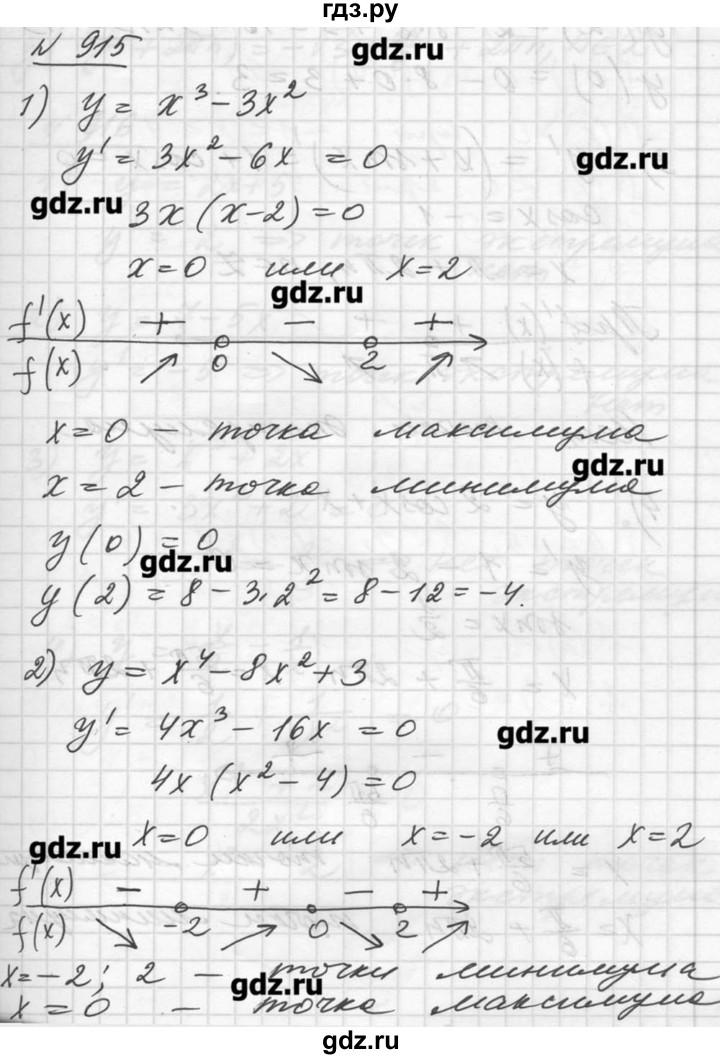 гдз.ру
gdz.ru
N 915
1) y = x³ − 3x²
y' = 3x² − 6x = 0
gdz.ru
gdz.ru
3x (x−2) = 0
x=0 или x=2
gdz.ru
f'(x) + − +
0 2
f(x) ↗ ↘ ↗
x=0 − точка максимума
gdz.ru
x=2 − точка минимума
y(0) = 0
gdz.ru
y(2) = 8 − 3·2² = 8−12 = −4.
2) y = x⁴ − 8x² + 3
y' = 4x³ − 16x = 0
gdz.ru
4x (x² − 4) = 0
x=0 или x=−2 или x=2
gdz.ru
f'(x) − + − +
f(x) ↘ −2 ↗ 0 ↘ 2 ↗
x=−2; 2 − точки минимума
gdz.ru
x = 0 − точка максимума
gdz.ru